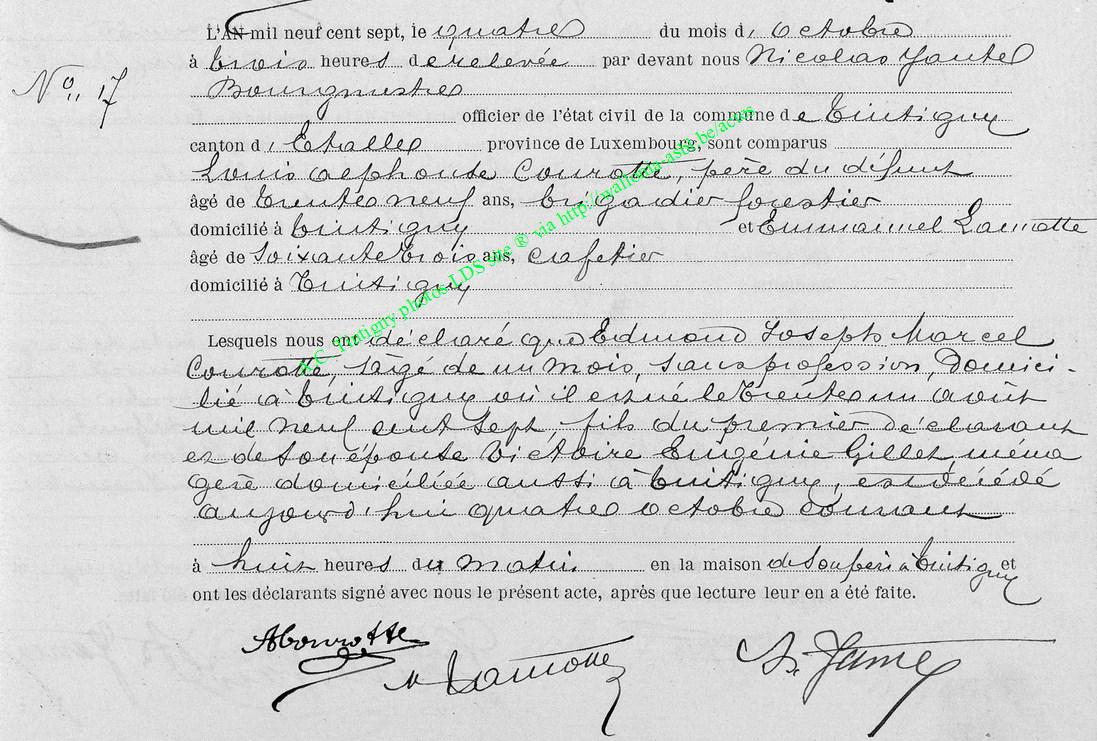 L'AN mil neuf cent sept, le quatre du mois d'octobre
No. 17
à trois heures de relevée par devant nous Nicolas
Bourgmestre
officier de l'état civil de la commune de Tintigny
canton d'Etalle province de Luxembourg, sont comparus
Louis Alphonse Courotte, père du défunt
âgé de trente neuf ans, brigadier forestier
domicilié à Tintigny et Emmanuel Lamotte
âgé de soixante trois ans, cafetier
domicilié à Tintigny
Lesquels nous ont déclaré que Edmond Joseph Marcel
Courotte, âgé de un mois, sans profession, domici-
lié à Tintigny où il est né le trente un août
mil neuf cent sept, fils du premier déclarant
et de son épouse Victoire Eugénie Gillet, ména
gère domiciliée aussi à Tintigny, est décédé
aujourd'hui quatre octobre courant
à huit heures du matin en la maison de son père à Tintigny et
ont les déclarants signé avec nous le présent acte, après que lecture leur en a été faite.
ACourotte
Lamotte
A.C. Tintigny photos LDS site ® via http://wallonia-asbl.be/actus